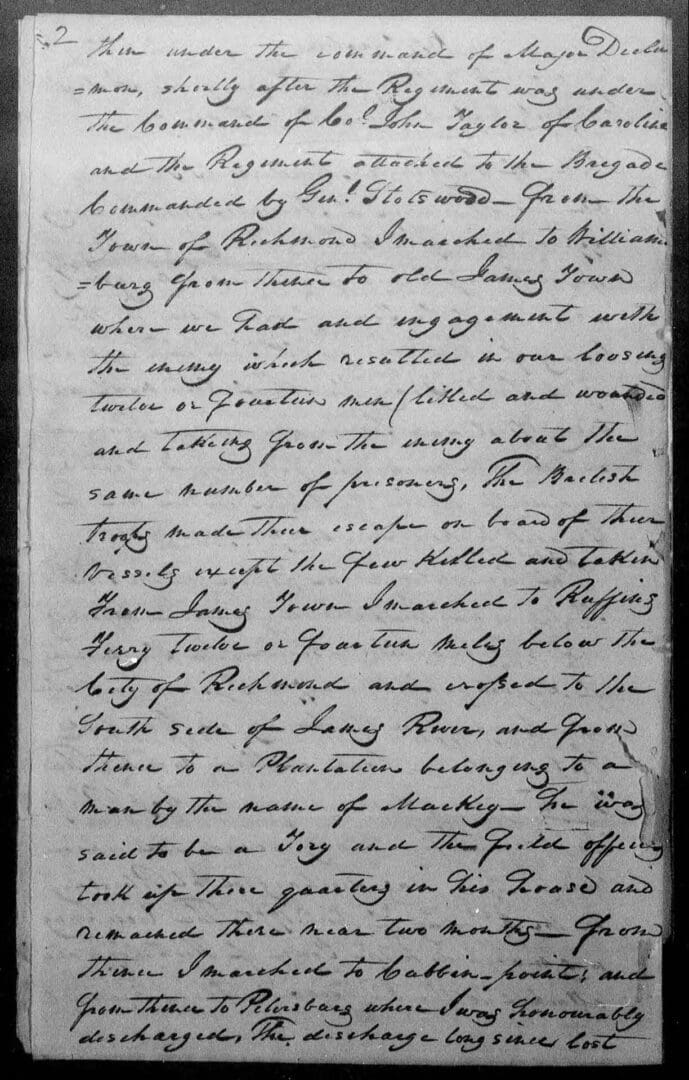 2
then under the command of Major Dicku
=mon, shortly after the Regiment was under
the Command of Col. John Taylor of Caroline
and the Regiment attached to the Brigade
Commanded by Genl. Stotswood - from the
Town of Richmond I marched to William
=burg from thence to old James Town
where we had and engagement with
the enemy which resulted in our loosing
twelve or fourteen men (killed and wounded
and taking from the enemy about the
same number of prisoners, The British
troops made their escape on board of their
vessels except the few killed and taken
From James Town I marched to Ruffins
Ferry twelve or fourteen miles below the
City of Richmond and crossed to the
South side of James River, and from
thence to a Plantation belonging to a
man by the name of Mackey - he was
said to be a Tory and the field officers
took up there quarters in his house and
remached there near two months - From
thence I marched to Cabbin-point; and
from thence to Petersburg where I was honourably
discharged, The discharge long since lost